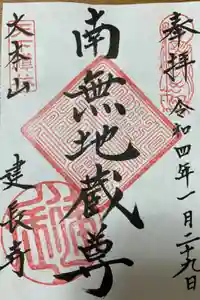 奉拝 令和四年一月二十九日
南無地蔵尊
大本山
建長寺